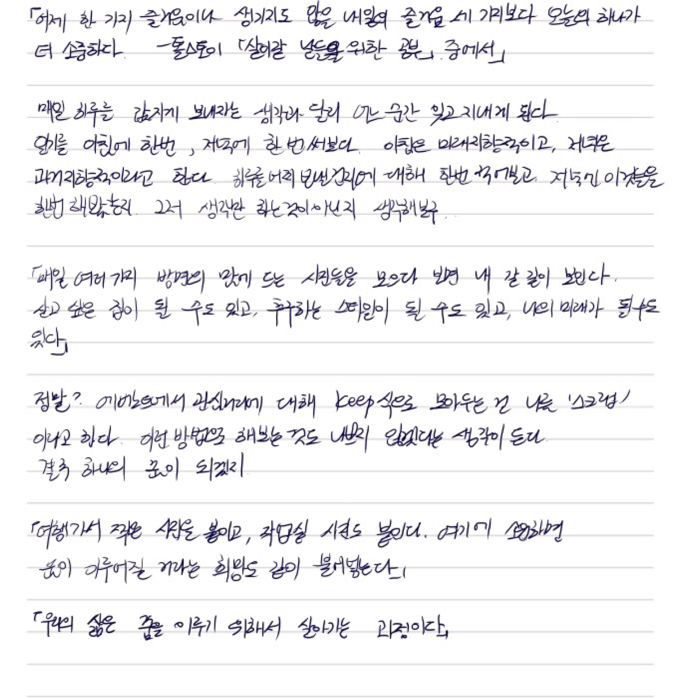 「어제 한 가지 즐거움이나 생기지도 않을 내일의 즐거움 세 가지보다 오늘의 하나가
더 소중하다. -톨스토이 「살아갈 날들을 위한 공부」 중에서」
매일 하루를 값지게 보내자는 생각과 달리 어느 순간 잊고 지내게 된다.
일기를 아침에 한번, 저녁에 한 번 써보다. 아침은 미래지향적이고, 저녁은
과거지향적이라고 한다. 하루를 어찌 보낼건지에 대해 한번 적어보고, 저녁엔 이것들을
한번 해봤는지 그저 생각만 하는것이 아닌지 생각해보구.
「매일 여러가지 방면의 맘에 드는 사진들을 모으다 보면 내 갈 길이 보인다.
살고 싶은 집이 될 수도 있고, 추구하는 스타일이 될 수도 있고, 나의 미래가 될 수도
있다」
정말? 에서 관심거리에 대해 keep식으로 모아두는 건 나를 '스크랩'
이라고 한다. 이런 방법으로 해보는 것도 나쁘지 않겠다는 생각이 든다
결국 하나의 꿈이 되겠지
「여행가서 찍은 사진을 붙이고, 작업실 사진도 붙인다. 여기에 소원하면
꿈이 이루어질 거라는 희망도 같이 불어넣는다」
「우리의 삶은 꿈을 이루기 위해서 살아가는 과정이다」